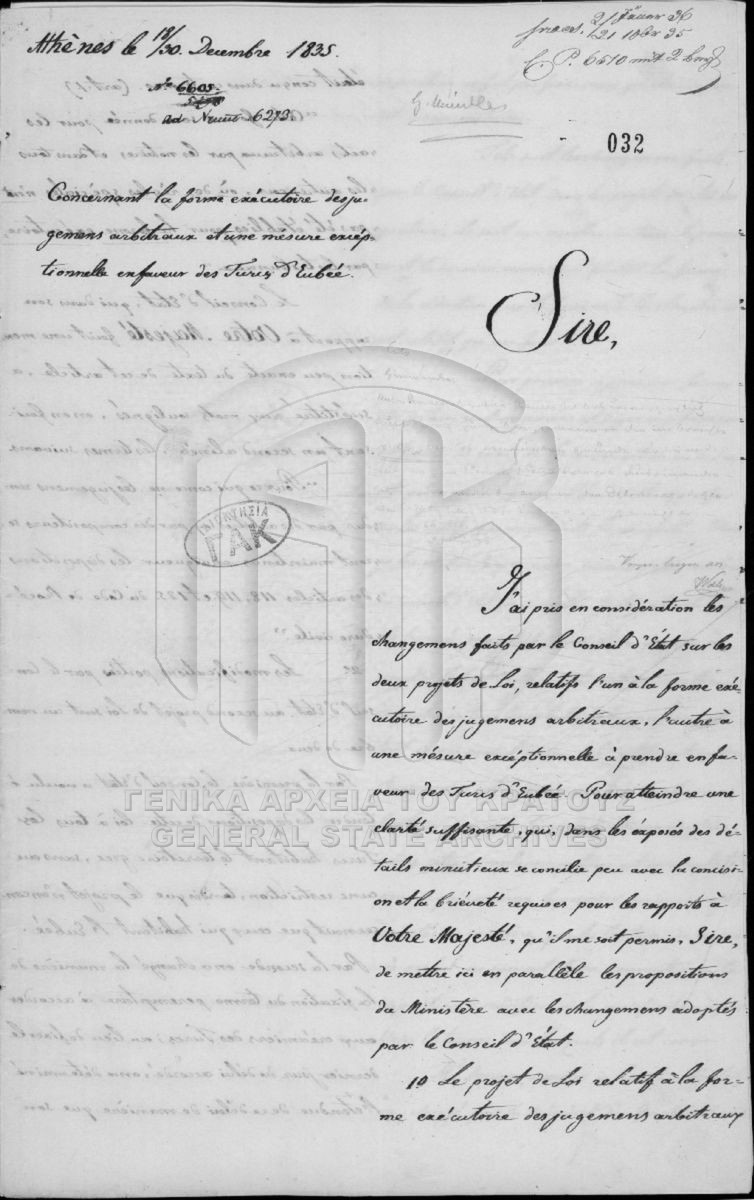 Athènes le 18/30. Decembre 1835.
No 6605.
ad Num 6273.
032
Concernant la forme exécutoire des ju-
gemens arbitraux et une mésure excép-
tionnelle en faveur des Turcs d'Eubée.
Sire,
J'ai pris en considération les
changemens faits par le Conseil d'État sur les
deux projets de Loi, relatifs l'un à la forme exé-
cutoire des jugemens arbitraux, l'autre à
une mésure excéptionnelle à prendre en fa-
veur des Turcs d'Eubée. Pour atteindre une
clarté suffisante, qui, dans les éxposés des dé-
tails minutieux se concilie peu avec la concisi-
on et la brièveté requises pour les rapports à
Votre Majesté, qu'il me soit permis, Sire,
de mettre ici en parallèle les propositions
du Ministère avec les changemens adoptés
par le Conseil d'État.
1o Le projet de Loi relatif à la for-
me exécutoire des jugemens arbitraux
ΓΑΚ
ΓΕΝΙΚΑ ΑΡΧΕΙΑ ΤΟΥ ΚΡΑΤΟΥΣ
GENERAL STATE ARCHIVES